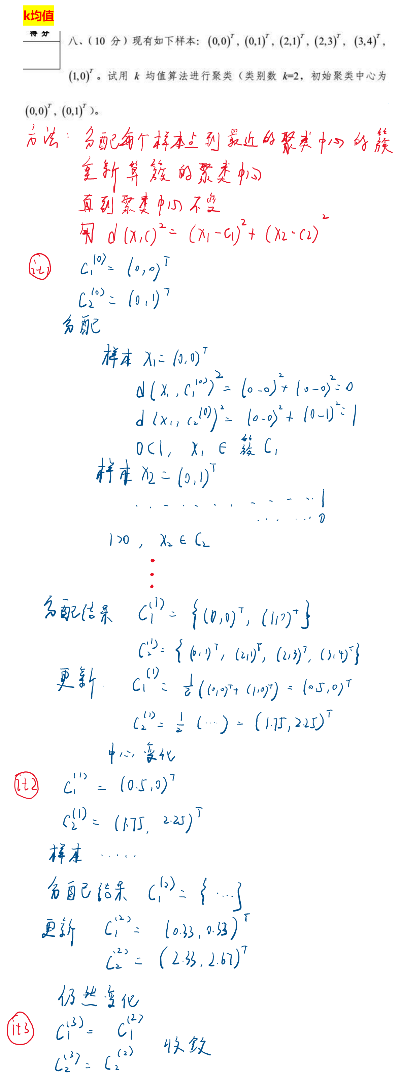 k均值
得 分
八、(10 分) 现有如下样本: (0,0)ᵀ, (0,1)ᵀ, (2,1)ᵀ, (2,3)ᵀ, (3,4)ᵀ,
(1,0)ᵀ。试用 k 均值算法进行聚类 (类别数 k=2, 初始聚类中心为
(0,0)ᵀ, (0,1)ᵀ)。
方法: 分配每个样本点到最近的聚类中心的簇
重新算簇的聚类中心
直到聚类中心不变
用 d(x,c)² = (x₁-c₁)² + (x₂-c₂)²
it1
C₁⁽⁰⁾ = (0,0)ᵀ
C₂⁽⁰⁾ = (0,1)ᵀ
分配
样本 x₁ = (0,0)ᵀ
d(x₁, c₁⁽⁰⁾)² = (0-0)² + (0-0)² = 0
d(x₁, c₂⁽⁰⁾)² = (0-0)² + (0-1)² = 1
0<1, x₁ ∈ 簇 C₁
样本 x₂ = (0,1)ᵀ
............1
......0
1>0, x₂ ∈ C₂
分配结果 C₁⁽¹⁾ = {(0,0)ᵀ, (1,0)ᵀ}
C₂⁽¹⁾ = {(0,1)ᵀ, (2,1)ᵀ, (2,3)ᵀ, (3,4)ᵀ}
更新 C₁⁽¹⁾ = ½((0,0)ᵀ+(1,0)ᵀ) = (0.5,0)ᵀ
C₂⁽¹⁾ = ½ (...) = (1.75, 2.25)ᵀ
中心变化
it2
C₁⁽¹⁾ = (0.5,0)ᵀ
C₂⁽¹⁾ = (1.75, 2.25)ᵀ
样本 .....
分配结果 C₁⁽²⁾ = {...}
更新 C₁⁽²⁾ = (0.33, 0.33)ᵀ
C₂⁽²⁾ = (2.33, 2.67)ᵀ
仍然变化
it3 C₁⁽³⁾ = C₁⁽²⁾
C₂⁽³⁾ = C₂⁽²⁾ 收敛